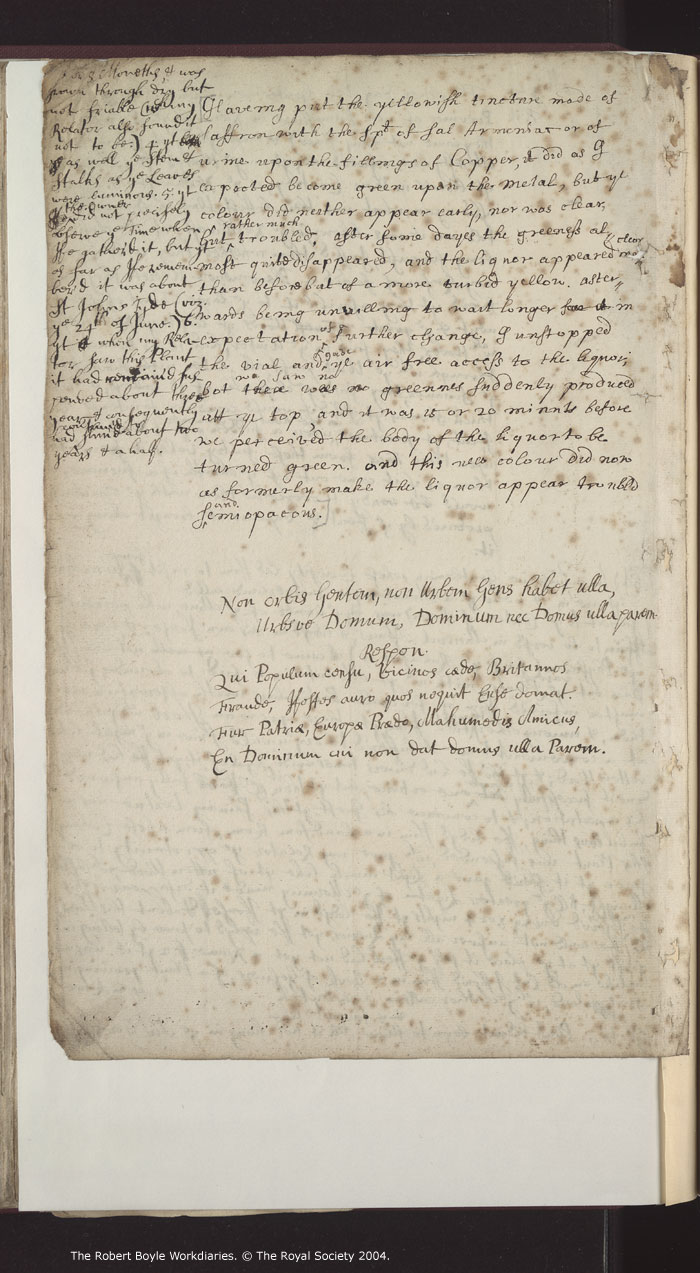 3 Moneths, & was
grown through dry but
not friable (which my
Relator also found it
not to be) & yt
as well ye Stem &
Stalks as ye Leaves
were luminous. yt
the owner
did not precisely
observe ye time when
He gathered it, but
as far as He remem-
berd it was about
St Johns Tyde (viz.
ye 24th of June.) 6.
yt when my Rela-
tor saw this Plant
it had remaind pre
served about three
years & consequently
continued
had shind about two
years & a half.
Haveing put the yellowish tincture made of
saffron with the spt of sal Armoniac or of
urine upon the fillings of Copper, it did as I
expected become green upon the metal, but ye
colour did neither appear early, nor was clear
rather much
but troubled. after some dayes the greeness al-
most quite disappeared, and the liquor appeared clear
than before but of a more turbid yellow. after,,
wards being unwilling to wait longer for it in
expectation of further change, I unstopped
the vial and gave ye air free access to the liquor,
we saw no
bot there was no greennes suddenly produced
att ye top, and it was 15 or 20 minuts before
we perceived the body of the liquor to be
turned green. and this new colour did now
as formerly make the liquor appear troubled
and
semiopacous.
Non orbis Gentem, non Urbem Gens habet ulla,
Urbsve Domum, Dominum nec Domus ulla parem.
Respon.
Qui Populum censu, Vicinos cæde, Britannos
Fraude, Hostes auro quos nequit Ense domat.
Fur Patriæ, Europæ Prædo, Mahumedis Amicus,
En Dominum cui non dat domus ulla Parem.
The Robert Boyle Workdiaries. © The Royal Society 2004.